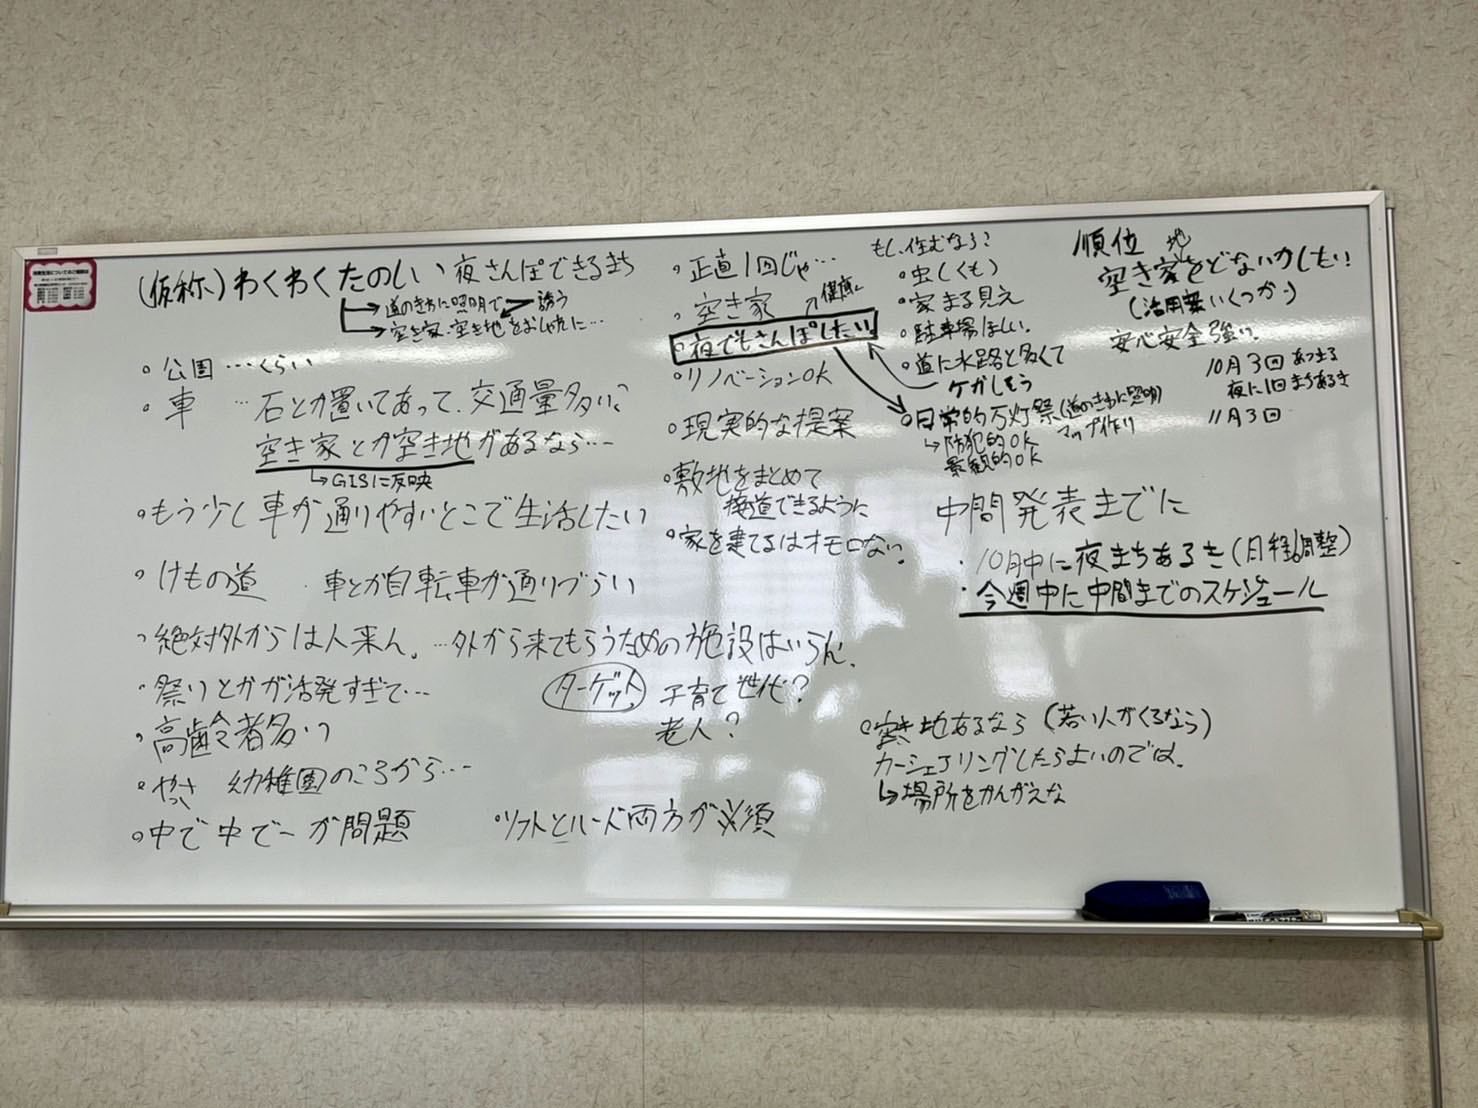 (仮称)わくわくたのしい、夜さんぽできるまち
→道のきわに照明で 誘う
→空き家・空き地をおしゃれに…
・公園…くらい
・車 …石とか置いてあって、交通量多い?
空き家とか空き地があるなら…
↳GISに反映
・もう少し車が通りやすいとこで生活したい
・けもの道 ・車とか自転車が通りづらい
・絶対外からは人来ん。…外から来てもらうための施設はいらん。
・祭りとかが活発すぎて…
ターゲット 子育て世代?
老人?
・高齢者多い
・やっさ 幼稚園のころから…
・中で中でーが問題
・ソフトとハード両方が必須
・正直1回じゃ…
・空き家 ↗健康に
・夜でもさんぽしたい。
・リノベーションOK
・現実的な提案
・敷地をまとめて
接道できるように
・家を建てるはオモロない。
もし、住むなら?
・虫(くも)
・家まる見え
・駐車場ほしい。
・道に水路と多くて
ケガしそう
・日常的万灯祭(道のきわに照明)
↳防犯的OK マップ作り
景観的OK
順位
空き家をどないかしたい!
地
(活用案いくつか)
安心安全強い。
10月3回 あつまる
夜に1回まちあるき
11月3回
中間発表までに
・10月中に夜まちあるき(日程調整)
・今週中に中間までのスケジュール
・空き地あるなら(若い人がくるなら)
カーシェアリングしたらよいのでは。
↳場所をかんがえな